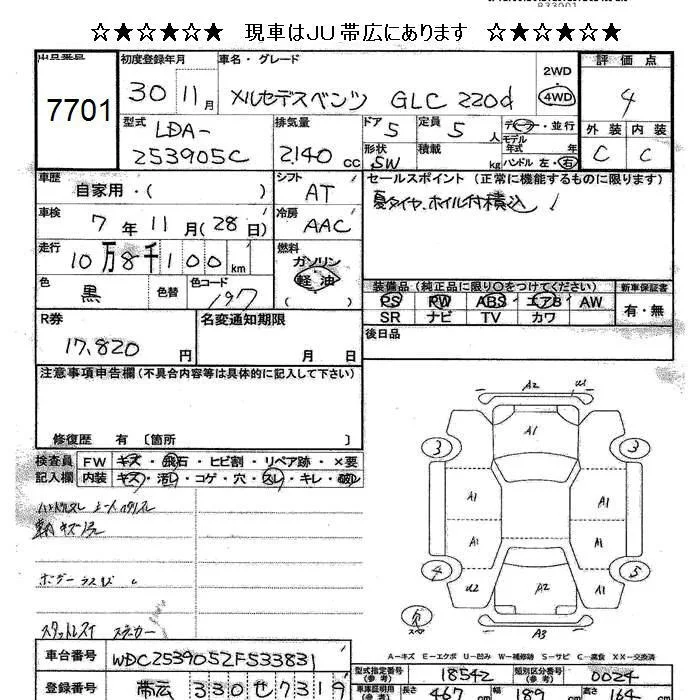 ☆★☆★☆★ 現車はJU帯広にあります ☆★☆★☆★
出品番号 初度登録年月 車名・グレード 評価点
7701 30 11月 メルセデスベンツ GLC 220d 2WD 4WD 4
型式 排気量 ドア 定員 ディーラー・並行 外装 内装
LDA- 5 5人 モデル年式 年
253905C 2,140cc 形状 SW 積載 kg ハンドル 左・右 C C
車歴 自家用・( ) シフト AT セールスポイント(正常に機能するものに限ります)
車検 7年11月(28日) 冷房 AAC 夏タイヤ、ホイル付積込
走行 10万8千100km 燃料 ガソリン 軽油
色 黒 色替 色コード 197 装備品(純正品に限り○をつけてください) 新車保証書
PS PW ABS エアB AW 有・無
SR ナビ TV カワ
R券 名変通知期限 後日品
17,820円 月 日
注意事項申告欄(不具合内容等は具体的に記入して下さい)
修復歴 有 〔箇所 〕
検査員 FW キズ・飛石・ヒビ割・リペア跡・×要
記入欄 内装 キズ・汚レ・コゲ・穴・スレ・キレ・破レ
ハンドルスレ
スタットレスイ ステーカー
A2 U1
A1
3 3
A1 A1
A1 A1
4 5
U2 A2 A1
A3
A－キズ E－エクボ U－凹み W－補修跡 S－サビ C－腐食 XX－交換済
車台番号 WDC2539052F533831 型式指定番号(参考) 18542 類別区分番号(参考) 0024
登録番号 帯広 330 せ 7319 車庫証明用(参考) 長さ 467 cm 幅 189 cm 高さ 164 cm